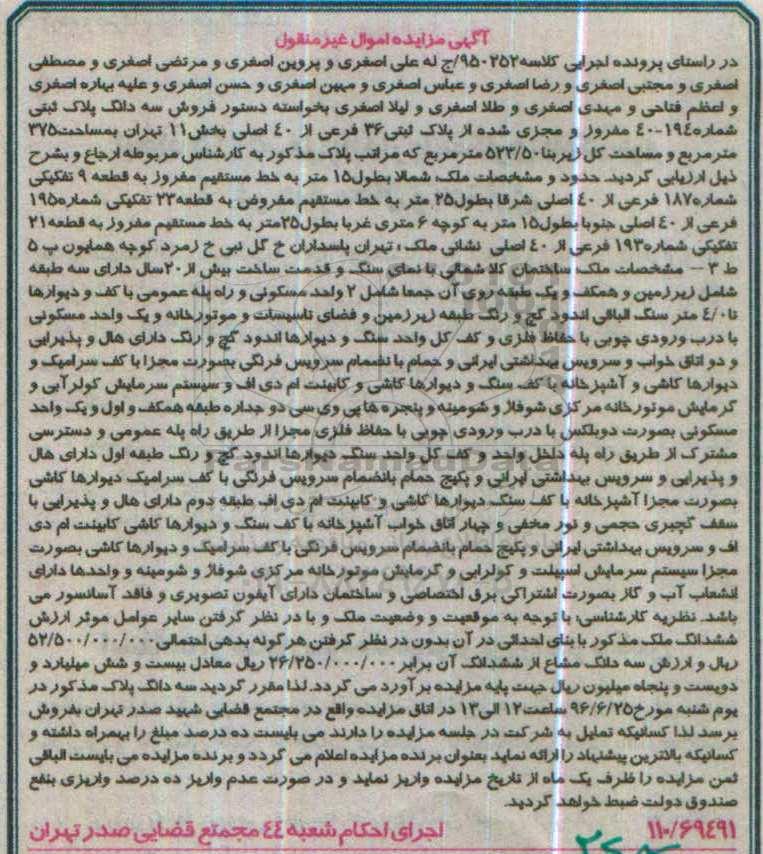 آگهی مزایده اموال غیرمنقول
در راستای پرونده اجرایی کلاسه۹۵۰۲۵۲/ج له علی اصغری و پروین اصغری و مرتضی اصغری و مصطفی
اصغری و مجتبی اصغری و رضا اصغری و عباس اصغری و مهین اصغری و حسن اصغری و علیه بهاره اصغری
و اعظم فتاحی و مهدی اصغری و طلا اصغری و لیلا اصغری بخواسته دستور فروش سه دانگ پلاک ثبتی
شماره۴۰-۱۹۴ مفروز و مجزی شده از پلاک ثبتی۳۶ فرعی از ۴۰ اصلی بخش۱۱ تهران بمساحت۳۷۵
مترمربع و مساحت کل زیربنا۵۲۳/۵۰ مترمربع که مراتب پلاک مذکور به کارشناس مربوطه ارجاع و بشرح
ذیل ارزیابی گردید. حدود و مشخصات ملک: شمالا بطول۱۵ متر به خط مستقیم مفروز به قطعه ۹ تفکیکی
شماره۱۸۷ فرعی از ۴۰ اصلی شرقا بطول۲۵ متر به خط مستقیم مفروض به قطعه۲۳ تفکیکی شماره۱۹۵
فرعی از ۴۰ اصلی جنوبا بطول۱۵ متر به کوچه ۶ متری غربا بطول۲۵متر به خط مستقیم مفروز به قطعه۲۱
تفکیکی شماره۱۹۳ فرعی از ۴۰ اصلی نشانی ملک : تهران پاسداران خ گل نبی خ زمرد کوچه همایون پ ۵
ط ۳ – مشخصات ملک: ساختمان کلا شمالی با نمای سنگ و قدمت ساخت بیش از۲۰سال دارای سه طبقه
شامل زیرزمین و همکف و یک طبقه روی آن جمعا شامل ۲ واحد مسکونی و راه پله عمومی با کف و دیوارها
تا۴/۰ متر سنگ الباقی اندود گچ و رنگ طبقه زیرزمین و فضای تاسیسات و موتورخانه و یک واحد مسکونی
با درب ورودی چوبی با حفاظ فلزی و کف کل واحد سنگ و دیوارها اندود گچ و رنگ دارای هال و پذیرایی
و دو اتاق خواب و سرویس بهداشتی ایرانی و حمام با نضمام سرویس فرنگی بصورت مجزا با کف سرامیک و
دیوارها کاشی و آشپزخانه با کف سنگ و دیوارها کاشی و کابینت ام دی اف و سیستم سرمایش کولرآبی و
گرمایش موتورخانه مرکزی شوفاژ و شومینه و پنجره ها پی وی سی دو جداره طبقه همکف و اول و یک واحد
مسکونی بصورت دوبلکس با درب ورودی چوبی با حفاظ فلزی مجزا از طریق راه پله عمومی و دسترسی
مشترک از طریق راه پله داخل واحد و کف کل واحد سنگ دیوارها اندود گچ و رنگ طبقه اول دارای هال
و پذیرایی و سرویس بهداشتی ایرانی و پکیج حمام بانضمام سرویس فرنگی با کف سرامیک دیوارها کاشی
بصورت مجزا آشپزخانه با کف سنگ دیوارها کاشی و کابینت ام دی اف طبقه دوم دارای هال و پذیرایی با
سقف گچبری حجمی و نور مخفی و چهار اتاق خواب آشپزخانه با کف سنگ و دیوارها کاشی کابینت ام دی
اف و سرویس بهداشتی ایرانی و پکیج حمام بانضمام سرویس فرنگی با کف سرامیک و دیوارها کاشی بصورت
مجزا سیستم سرمایش اسپیلت و کولرابی و گرمایش موتورخانه مرکزی شوفاژ و شومینه و واحدها دارای
انشعاب آب و گاز بصورت اشتراکی برق اختصاصی و ساختمان دارای آیفون تصویری و فاقد آسانسور می
باشد. نظریه کارشناسی: با توجه به موقعیت و وضعیت ملک و با در نظر گرفتن سایر عوامل موثر ارزش
ششدانگ ملک مذکور با بنای احداثی در آن بدون در نظر گرفتن هر گونه بدهی احتمالی۵۲/۵۰۰/۰۰۰/۰۰۰
ریال و ارزش سه دانگ مشاع از ششدانگ آن برابر ۲۶/۲۵۰/۰۰۰/۰۰۰ ریال معادل بیست و شش میلیارد و
دویست و پنجاه میلیون ریال جهت پایه مزایده برآورد می گردد. لذا مقرر گردید سه دانگ پلاک مذکور در
یوم شنبه مورخ۹۶/۶/۲۵ ساعت۱۲ الی۱۳ در اتاق مزایده واقع در مجتمع قضایی شهید صدر تهران بفروش
برسد لذا کسانیکه تمایل به شرکت در جلسه مزایده را دارند می بایست ده درصد مبلغ را بهمراه داشته و
کسانیکه بالاترین پیشنهاد را ارائه نماید بعنوان برنده مزایده اعلام می گردد و برنده مزایده می بایست الباقی
ثمن مزایده را ظرف یک ماه از تاریخ مزایده واریز نماید و در صورت عدم واریز ده درصد واریزی بنفع
صندوق دولت ضبط خواهد گردید.
۱۱۰/۶۹۴۹۱ اجرای احکام شعبه ۴۴ مجمتع قضایی صدر تهران